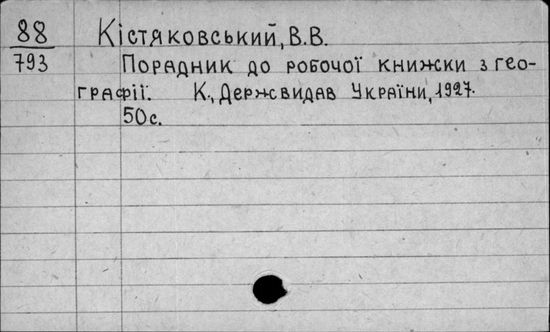 88 Кістяковський, В.В.
793 Порадник до робочої книжки з гео-
графії. К., Держвидав України, 1927.
50с.